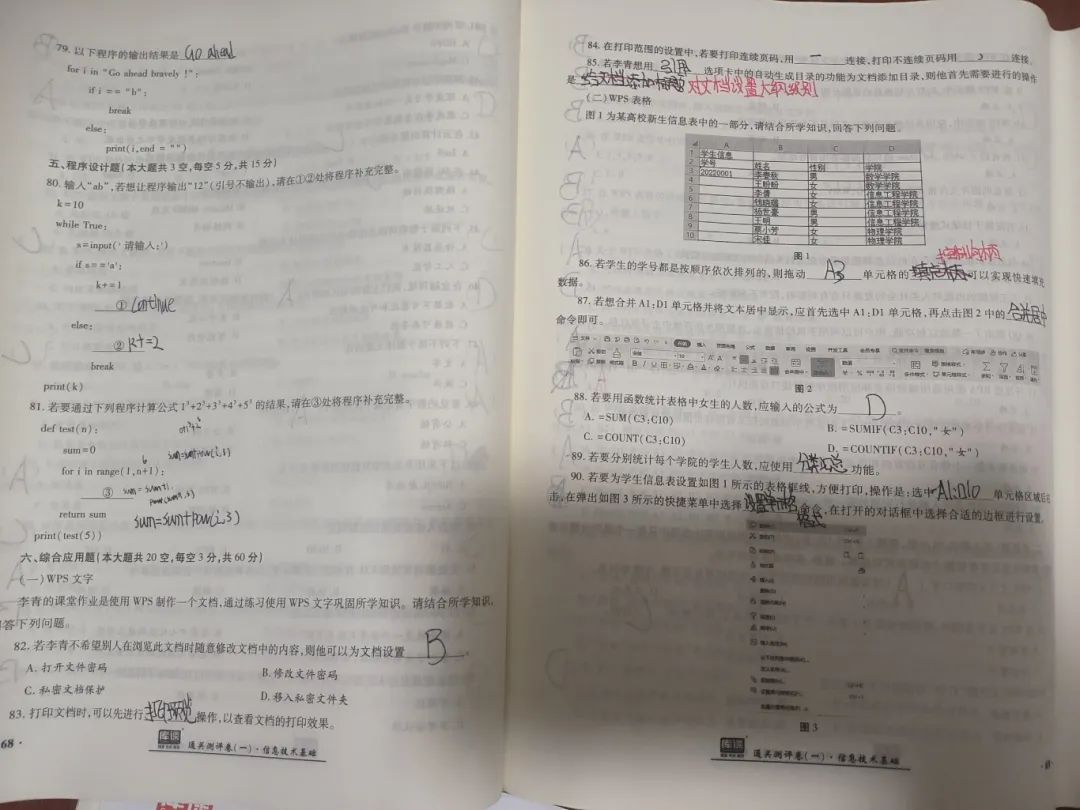 79. 以下程序的输出结果是 Go ahead
for i in "Go ahead bravely !":
if i == "b":
break
else:
print(i,end = "")
五、程序设计题(本大题共 3 空,每空 5 分,共 15 分)
80. 输入“ab”,若想让程序输出“12”(引号不输出),请在①②处将程序补充完整。
k=10
while True:
s=input(' 请输入:')
if s=='a':
k+=1
① continue
else:
② k+=2
break
print(k)
81. 若要通过下列程序计算公式 1³+2³+3³+4³+5³ 的结果,请在③处将程序补充完整。
def test(n):
sum=0
sum=sum+pow(i,3)
for i in range(1,n+1):
6
③
return sum
sum=sum+pow(i,3)
print(test(5))
六、综合应用题(本大题共 20 空,每空 3 分,共 60 分)
(一)WPS 文字
李青的课堂作业是使用 WPS 制作一个文档,通过练习使用 WPS 文字巩固所学知识。请结合所学知识,
回答下列问题。
82. 若李青不希望别人在浏览此文档时随意修改文档中的内容,则他可以为文档设置 B 。
A. 打开文件密码 B. 修改文件密码
C. 私密文档保护 D. 移入私密文件夹
83. 打印文档时,可以先进行 打印预览 操作,以查看文档的打印效果。
68 ·
库课
通关测评卷(一)·信息技术基础
84. 在打印范围的设置中,若要打印连续页码,用 — 连接,打印不连续页码用 , 连接
85. 若李青想用 引用 选项卡中的自动生成目录的功能为文档添加目录,则他首先需要进行的操作
是 给文档添加标题 对文档设置大纲级别
(二)WPS 表格
图 1 为某高校新生信息表中的一部分,请结合所学知识,回答下列问题。
A B C D
1 学生信息
2 学号 姓名 性别 学院
3 20220001 李春秋 男 数学学院
4 王盼盼 女 数学学院
5 李倩 女 信息工程学院
6 钱晓璐 女 信息工程学院
7 杨世豪 男 信息工程学院
8 王明 男 信息工程学院
9 蔡小芳 女 物理学院
10 宋佳 女 物理学院
图 1
86. 若学生的学号都是按顺序依次排列的,则拖动 A3 单元格的 填充柄 可以实现快速填充
数据。
87. 若想合并 A1:D1 单元格并将文本居中显示,应首先选中 A1:D1 单元格,再点击图 2 中的 合并居中
命令即可。
图 2
88. 若要用函数统计表格中女生的人数,应输入的公式为 D 。
A. =SUM(C3:C10) B. =SUMIF(C3:C10,"女")
C. =COUNT(C3:C10) D. =COUNTIF(C3:C10,"女")
89. 若要分别统计每个学院的学生人数,应使用 分类汇总 功能。
90. 若要为学生信息表设置如图 1 所示的表格框线,方便打印,操作是:选中 A1:D10 单元格区域后右
击,在弹出如图 3 所示的快捷菜单中选择 设置单元格格式 命令,在打开的对话框中选择合适的边框进行设置
图 3
库课
通关测评卷(一)·信息技术基础